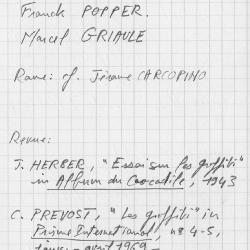 Franck POPPER.
Marcel GRIAULE
Rome : cf. Jérôme CARCOPINO
Revue :
J. HERBER, "Essai sur les graffiti"
in Album du Crocodile, 1943
C. PREVOST, "Les graffiti" in
Prisme International n° 3 4-5,
- avril 1969 -